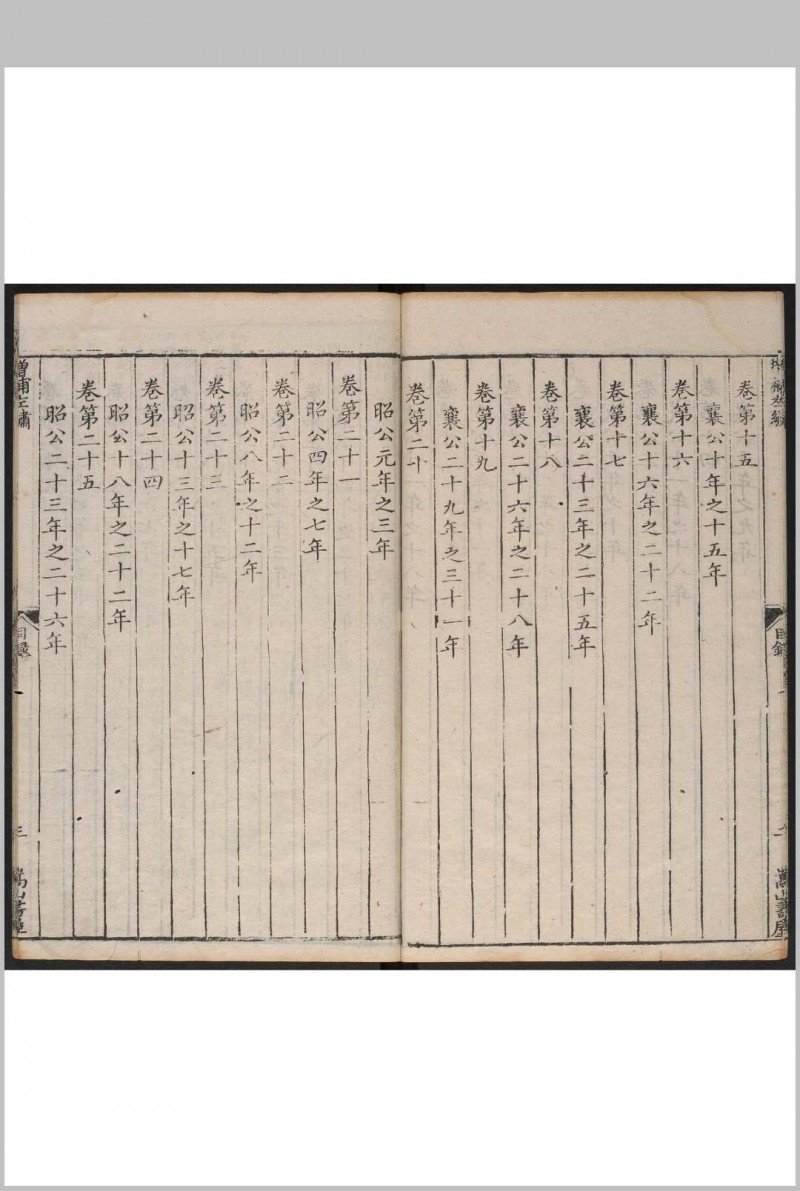 卷第十五
襄公十年之十五年
卷第十六
襄公十六年之二十二年
卷第十七
襄公二十三年之二十五年
卷第十八
襄公二十六年之二十八年
卷第十九
襄公二十九年之三十一年
卷第二十
昭公元年之三年
卷第二十一
昭公四年之七年
卷第二十二
昭公八年之十二年
卷第二十三
昭公十三年之十七年
卷第二十四
昭公十八年之二十二年
卷第二十五
昭公二十三年之二十六年
目錄
三
嵩山書屋